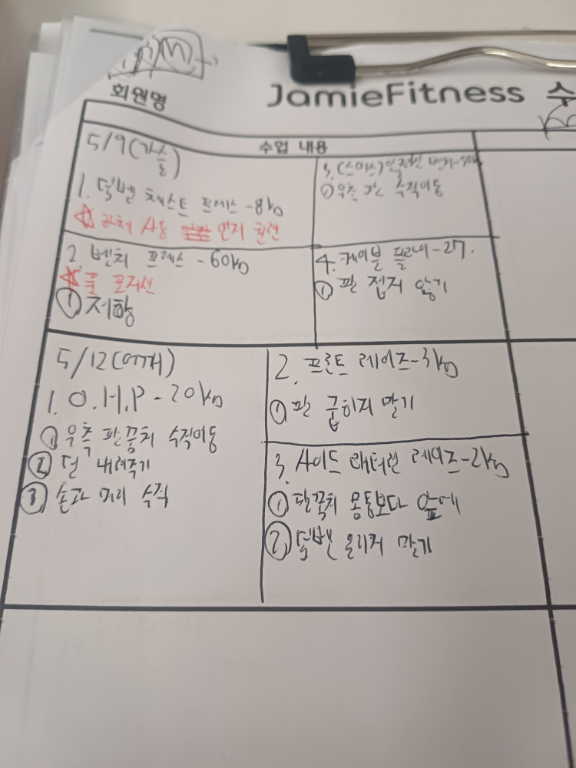 회원명
JamieFitness 수
수업 내용
5/9(가슴)
1. 덤벨 체스트 프레스-8kg
2. 벤치 프레스-60kg
풀 포지션
① 저항
① 우측 팔 수직이동
4. 케이블 플라이-27.
① 팔 접지 않기
5/12(어깨)
1. O.H.P-20kg
① 우측 팔꿈치 수직이동
② 덜 내려주기
③ 손과 머리 수직
2. 프론트 레이즈-3kg
① 팔 굽히지 말기
3. 사이드 래터럴 레이즈-2kg
① 팔꿈치 몸통보다 앞에
② 덤벨 올리지 말기